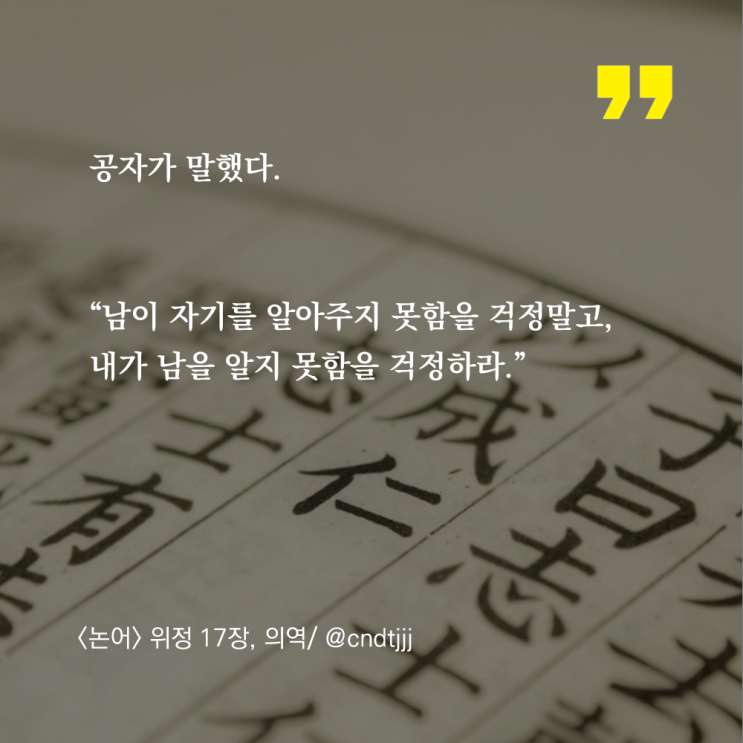 공자가 말했다.
“남이 자기를 알아주지 못함을 걱정말고,
내가 남을 알지 못함을 걱정하라.”
<논어> 위정 17장, 의역/ @cndtjjj
子曰志士
以成仁
志士
有